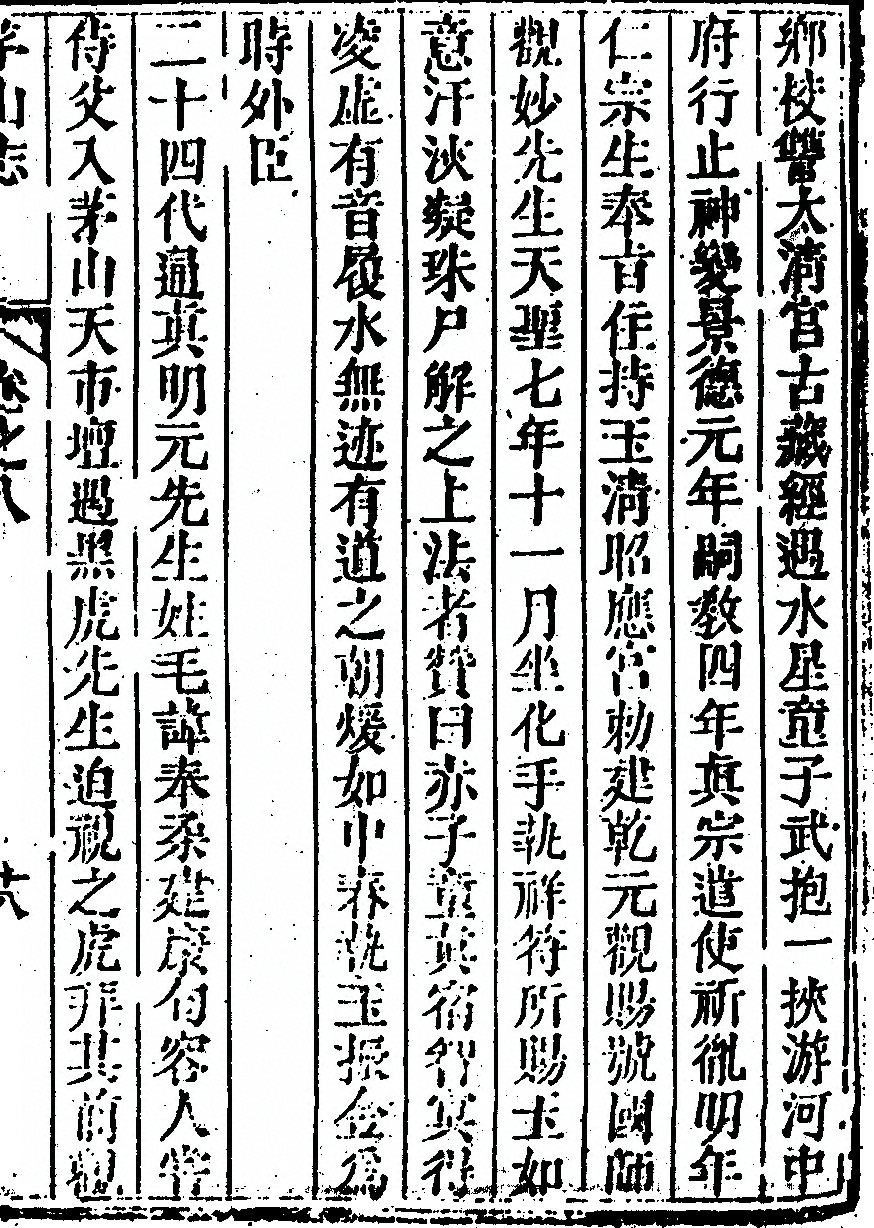 鄉校讐太清宮古藏經遇水星童子武抱一挾游河中
府行止神變景德元年嗣教四年真宗遣使祈胤明年
仁宗生奉旨住持玉清昭應宮勅建乾元觀賜號國師
觀妙先生天聖七年十一月坐化手執祥符所賜玉如
意汗浹凝珠尸解之上法者贊曰赤子童真宿智冥得
凌虛有音履水無迹有道之朝煖如中春執玉振金爲
時外臣
二十四代通真明元先生姓毛諱奉柔建康句容人嘗
侍父入茅山天市壇遇黑虎先生迫視之虎弭其前觀
茅山志 卷之八 共